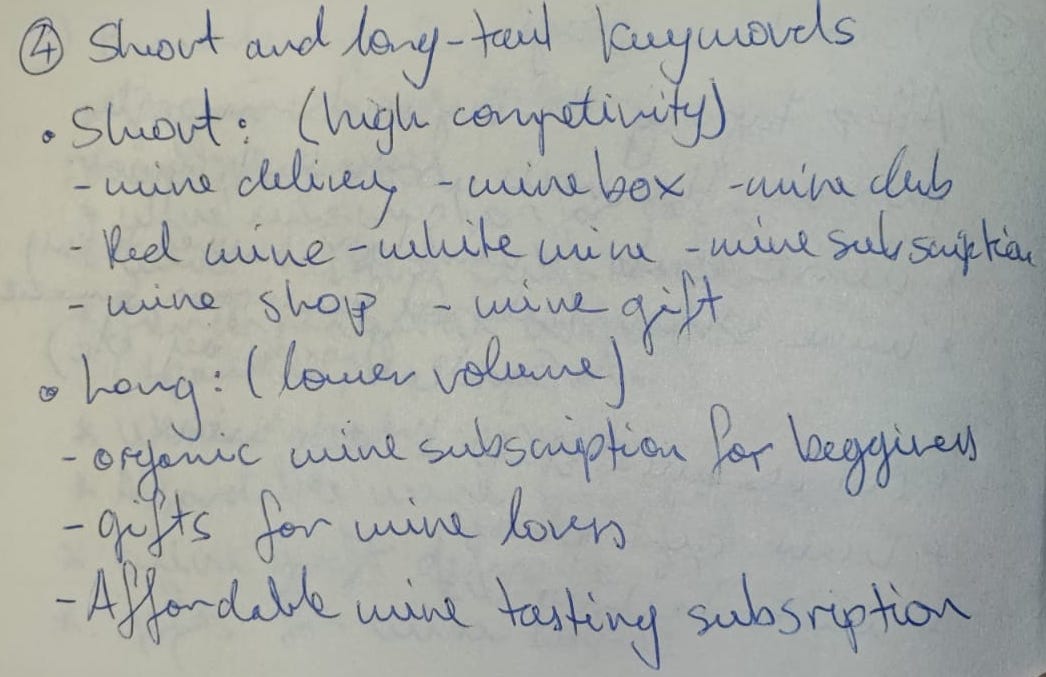 ④ Short and long-tail keywords
• Short: (high competivity)
- wine delivery - wine box - wine club
- Red wine - white wine - wine subscription
- wine shop - wine gift
• Long: (lower volume)
- organic wine subscription for begginers
- gifts for wine lovers
- Affordable wine tasting subsription